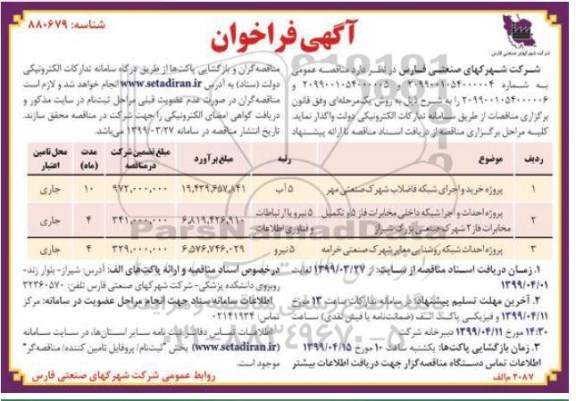 شناسه: ۸۸۰۶۷۹
آگهی فراخوان
شرکت شهرکهای صنعتی فارس
شرکت شهرکهای صنعتی فارس در نظر دارد مناقصه عمومی
به شماره ۲۰۹۹۰۰۱۰۵۴۰۰۰۰۰۴ و ۲۰۹۹۰۰۱۰۵۴۰۰۰۰۰۵ و
۲۰۹۹۰۰۱۰۵۴۰۰۰۰۰۶ را به شرح ذیل به روش یک‌مرحله‌ای وفق قانون
برگزاری مناقصات از طریق سامانه تدارکات الکترونیکی دولت واگذار نماید.
کلیه مراحل برگزاری مناقصه از دریافت اسناد مناقصه تا ارائه پیشنهاد
مناقصه‌گران و بازگشایی پاکت‌ها از طریق درگاه سامانه تدارکات الکترونیکی
دولت (ستاد) به آدرس www.setadiran.ir انجام خواهد شد و لازم است
مناقصه‌گران در صورت عدم عضویت قبلی مراحل ثبت‌نام در سایت مذکور و
دریافت گواهی امضای الکترونیکی را جهت شرکت در مناقصه محقق سازند.
تاریخ انتشار مناقصه در سامانه ۱۳۹۹/۰۳/۲۷ می‌باشد.
ردیف موضوع رتبه مبلغ برآورد مبلغ تضمین شرکت در مناقصه مدت (ماه) محل تامین اعتبار
۱ پروژه خرید و اجرای شبکه فاضلاب شهرک صنعتی مهر ۵ آب ۱۹,۴۳۹,۶۵۷,۸۴۱ ۹۷۲,۰۰۰,۰۰۰ ۱۰ جاری
۲ پروژه احداث و اجرا شبکه داخلی مخابرات فاز ۵ و تکمیل مخابرات فاز ۲ شهرک صنعتی بزرگ شیراز ۵ نیرو یا ارتباطات و فناوری اطلاعات ۶,۸۱۹,۴۲۶,۹۱۰ ۳۴۱,۰۰۰,۰۰۰ ۴ جاری
۳ پروژه احداث شبکه روشنایی معابر شهرک صنعتی خرامه ۵ نیرو ۶,۵۷۶,۷۴۶,۰۲۹ ۳۲۹,۰۰۰,۰۰۰ ۴ جاری
۱. زمان دریافت اسناد مناقصه از سایت: از ۱۳۹۹/۰۳/۲۷ لغایت
۱۳۹۹/۰۴/۰۱
۲. آخرین مهلت تسلیم پیشنهاد: در سامانه تدارکات ساعت ۱۳ مورخ
۱۳۹۹/۰۴/۱۱ و فیزیکی پاکت الف (ضمانت‌نامه یا فیش نقدی) ساعت
۱۴:۳۰ مورخ ۱۳۹۹/۰۴/۱۱ دبیرخانه شرکت
۳. زمان بازگشایی پاکت‌ها: یکشنبه ساعت ۱۰ مورخ ۱۳۹۹/۰۴/۱۵
اطلاعات تماس دستگاه مناقصه‌گزار جهت دریافت اطلاعات بیشتر
درخصوص اسناد مناقصه و ارائه پاکت‌های الف: آدرس: شیراز- بلوار زند-
روبروی دانشکده پزشکی- شرکت شهرکهای صنعتی فارس تلفن: ۳۲۳۶۰۵۷۰
اطلاعات سامانه ستاد جهت انجام مراحل عضویت در سامانه: مرکز
تماس: ۰۲۱۴۱۹۳۴
اطلاعات تماس دفاتر ثبت‌نام سایر استان‌ها، در سایت سامانه
(www.setadiran.ir) بخش "ثبت‌نام/ پروفایل تامین کننده/ مناقصه‌گر"
موجود است.
۲۰۸۷ م‌الف
روابط عمومی شرکت شهرکهای صنعتی فارس
ParsNamadData
۰۲۱-۸۸۳۴۹۶۷۰-۵